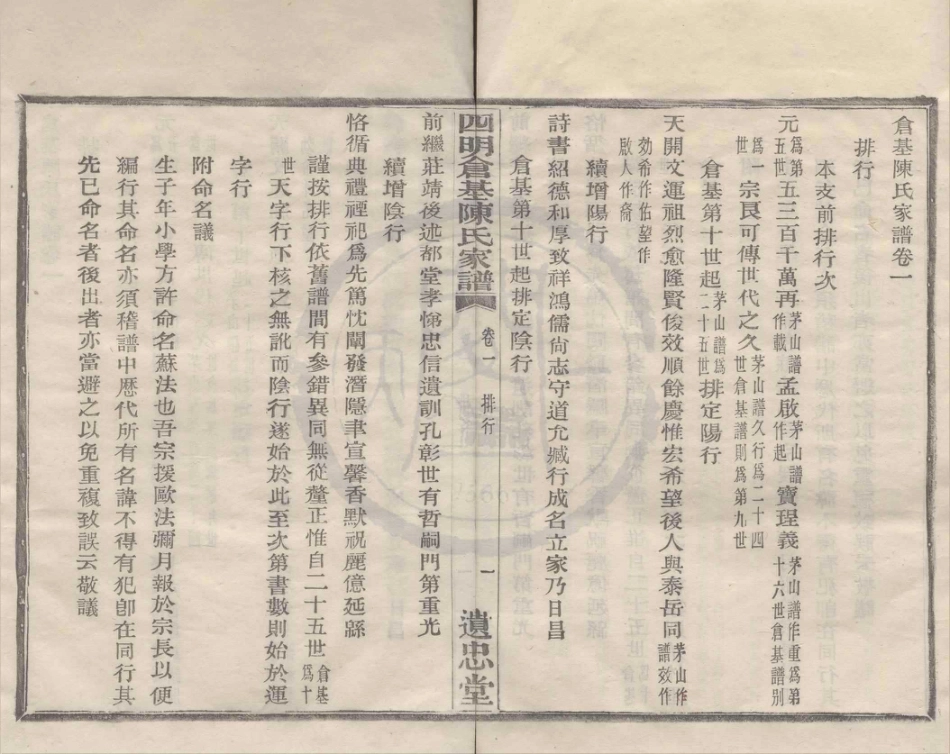 倉基陳氏家譜卷一
排行
本支前排行次
元為第五世五三百千萬再茅山譜作載孟啟茅山譜啟作起寶珵義茅山譜作重為第十六世倉基譜別
為一世宗良可傳世代之久茅山譜久行為二十四世倉基譜則為第九世
倉基第十世起茅山譜為二十五世排定陽行
天開文運祖烈愈隆賢俊效順餘慶惟宏希望後人與泰岳同茅山作譜效作
効希作佑望作啟人作裔
續增陽行
詩書紹德和厚致祥鴻儒尚志守道允臧行成名立家乃日昌
倉基第十世起排定陰行
四明倉基陳氏家譜 卷一 排行 一 遺忠堂
前繼莊靖後述都堂孝悌忠信遺訓孔彰世有哲嗣門第重光
續增陰行
恪循典禮禋祀為先篤忱闡發潛隱聿宣馨香默祝麗億延緜
謹按排行依舊譜間有參錯異同無從釐正惟自二十五世倉基為十
世天字行下核之無訛而陰行遂始於此至次第書數則始於運
字行
附命名議
生子年小學方許命名蘇法也吾宗援歐法彌月報於宗長以便
編行其命名亦須稽譜中歷代所有名諱不得有犯卽在同行其
先已命名者後出者亦當避之以免重複致誤云敬議